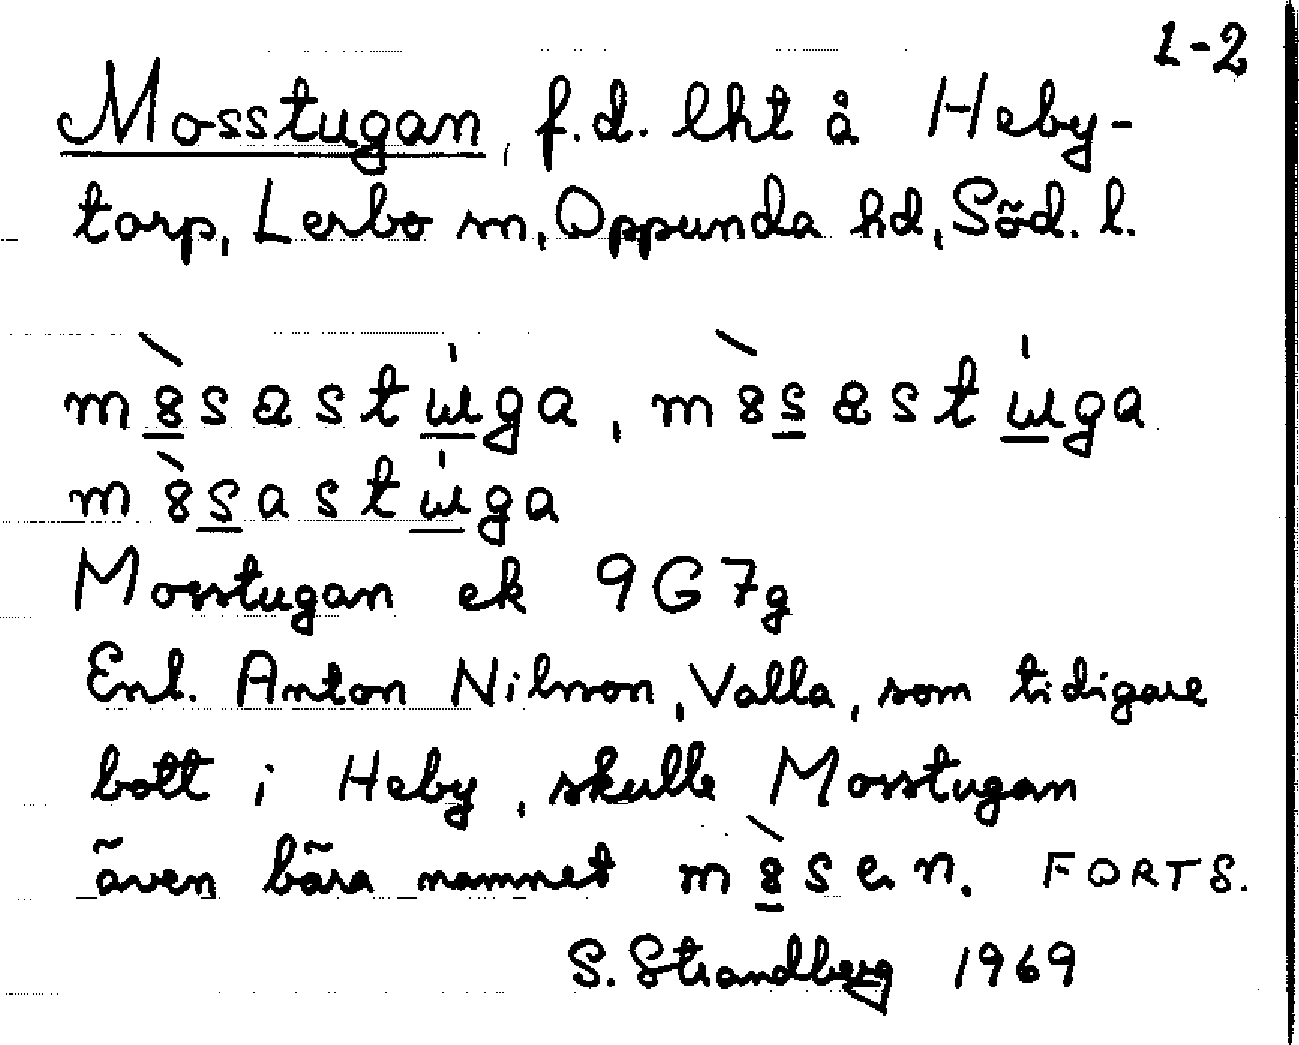 1-2
Mosstugan, f.d. lht å Heby-
torp, Lerbo sn, Oppunda hd, Söd. l.
m8̀sastɯ́ga, m8̀sastɯ́ga
m8̀sastɯ́ga
Mosstugan ek 9G7g
Enl. Anton Nilsson, Valla, som tidigare
bott i Heby, skulle Mosstugan
även bära namnet m8̀sen. FORTS.
S. Strandberg 1969